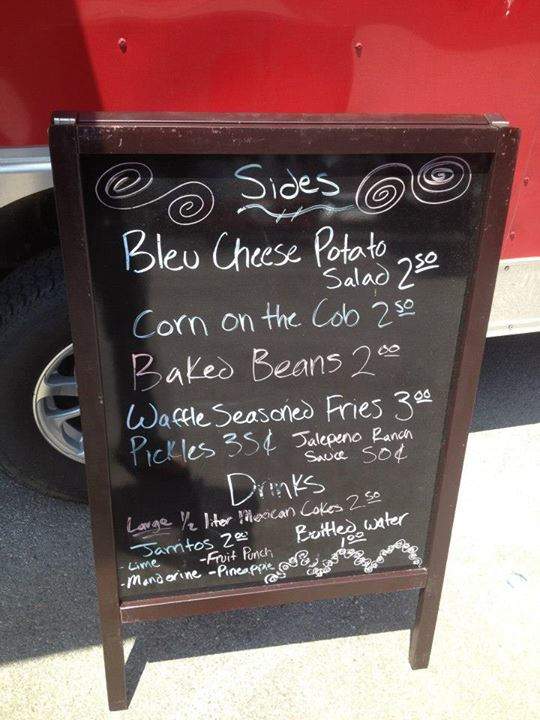 Sides
Bleu Cheese Potato
Salad 2 50
Corn on the Cob 2 50
Baked Beans 2 00
Waffle Seasoned Fries 3 00
Pickles 35¢ Jalepeno Ranch
Sauce 50¢
Drinks
Large 1/2 liter Mexican Cokes 2.50
Jarritos 2 00 Bottled Water
1 00
-Lime -Fruit Punch
-Mandarine -Pineapple